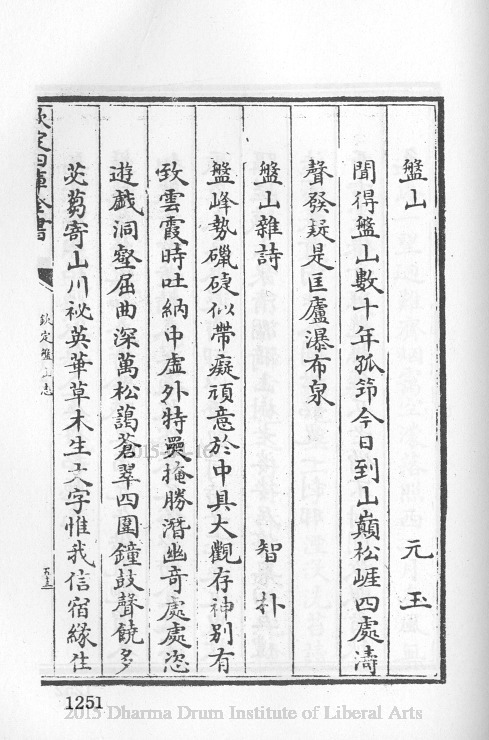 盤山　元玉
聞得盤山數十年孤筇今日到山巔松崕四處濤
聲發疑是匡廬瀑布泉
盤山雜詩　智朴
盤峰勢礧硊似帶癡頑意於中具大觀存神别有
致雲霞時吐納中虛外特異掩勝潛幽奇處處恣
遊戯洞壑屈曲深萬松藹蒼翠四圍鐘鼓聲饒多
苾蒭寄山川祕英華草木生文字惟我信宿緣住
欽定四庫全書
欽定盤山志
1251
2015 Dharma Drum Institute of Liberal Arts